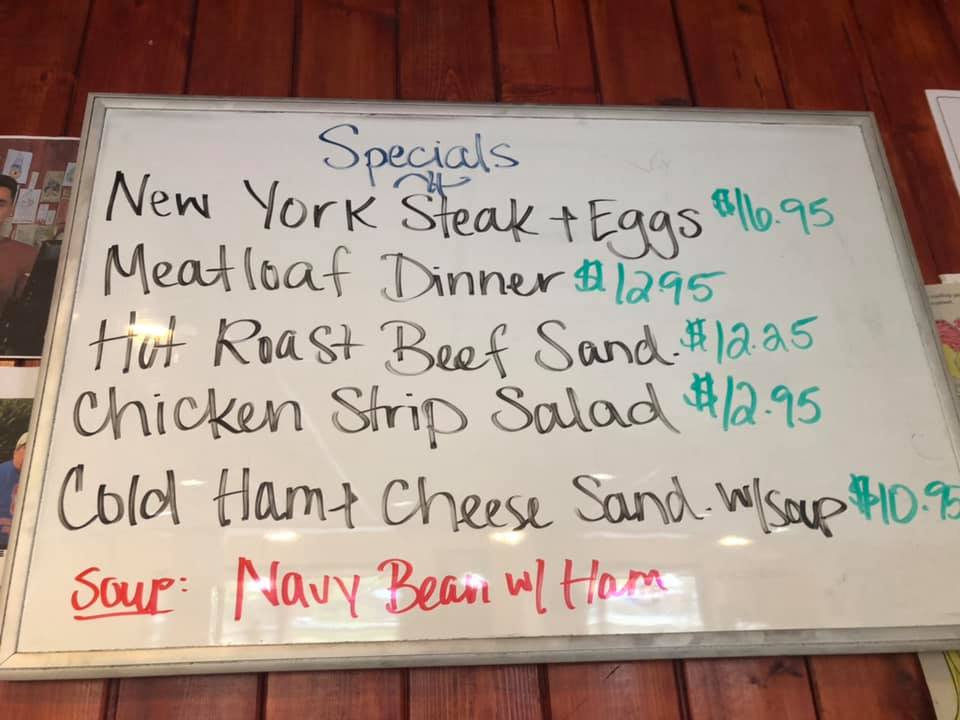 Specials
New York Steak + Eggs $16.95
Meatloaf Dinner $12.95
Hot Roast Beef Sand. $12.25
Chicken Strip Salad $12.95
Cold Ham + Cheese Sand. w/soup $10.95
Soup: Navy Bean w/ Ham